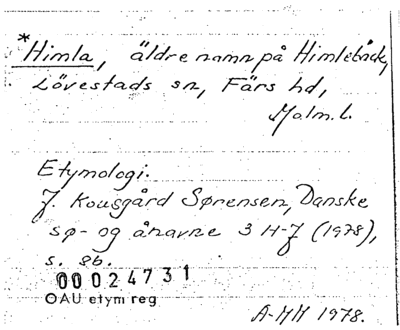 *Himla, äldre namn på Himlebäck,
Lövestads sn, Färs hd,
Malm.l.
Etymologi.
J. Kousgård Sørensen, Danske
sø- og ånavne 3 H-J (1978),
s. 86.
00024731
OAU etym reg
A-MM 1978.